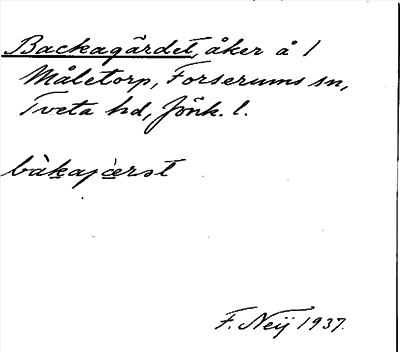 Backagärdet, åker å 1
Måletorp, Forserums sn,
Tveta hd, Jönk. l.
bàkajærət
F. Neij 1937.